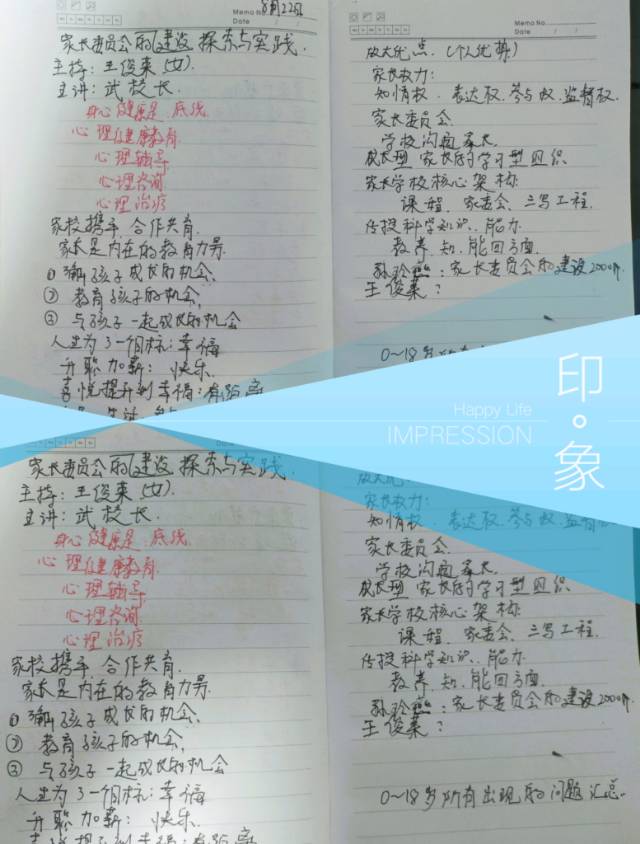 8月22日
Memo No.
Date / /
家长委员会的建设 探索与实践.
主持: 王俊莱(女).
主讲: 武校长
身心健康是 底线
心理健康教育
心理辅导
心理咨询
心理治疗
家校携手, 合作共育.
家长是内在的教育力
① 孩子成长的机会,
② 教育孩子的机会,
③ 与孩子一起成长的机会
人生为了一个目标: 幸福
升职加薪: 快乐.
喜悦提升到幸福: 有距离
Memo No.
Date / /
放大优点. (个人优势)
家长权力:
知情权. 表达权. 参与权. 监督权.
家长委员会.
学校沟通 家长
成长型 家长的学习型组织
家长学校核心架构:
课程. 家委会. 三写工程.
传授科学知识、能力
教养 知、能回方面.
家长委员会的建设2000.
王俊莱:
0~18岁所有
Happy Life
IMPRESSION
印象
家长委员会的建设 探索与实践.
主持: 王俊莱(女).
主讲: 武校长.
身心健康是 底线
心理健康教育
心理辅导
心理咨询
心理治疗
家校携手, 合作共育.
家长是内在的教育力
① 孩子成长的机会,
② 教育孩子的机会,
③ 与孩子一起成长的机会
人生为了一个目标: 幸福
升职加薪: 快乐.
放大优
家长权力:
知情权. 表达权. 参与权. 监督
家长委员会.
学校沟通 家长
成长型 家长的学习型组织
家长学校核心架构:
课程. 家委会. 三写工程.
传授科学知识、能力
教养 知、能回方面.
家长委员会的建设2000.
王俊莱:
0~18岁所有出现的问题汇总.